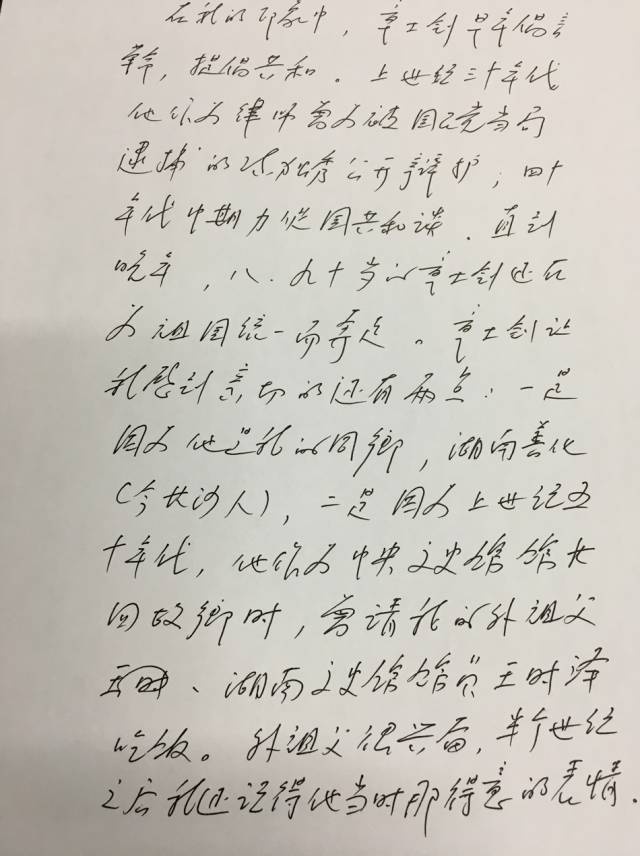 在我的印象中，章士钊早年倡言
革命，提倡共和。上世纪三十年代
他作为律师曾为被国民党当局
逮捕的陈独秀公开辩护；四十
年代中期力促国共和谈。直到
晚年，八、九十岁的章士钊还在
为祖国统一而奔走。章士钊让
我感到亲切的还有两点：一是
因为他是我的同鄉，湖南善化
（今长沙人），二是因为上世纪五
十年代，他作为中央文史馆馆长
回故鄉时，曾请我的外祖父
、湖南文史馆馆员王时泽
吃饭。外祖父很兴奋，半个世纪
之后我还记得他当时那得意的表情。